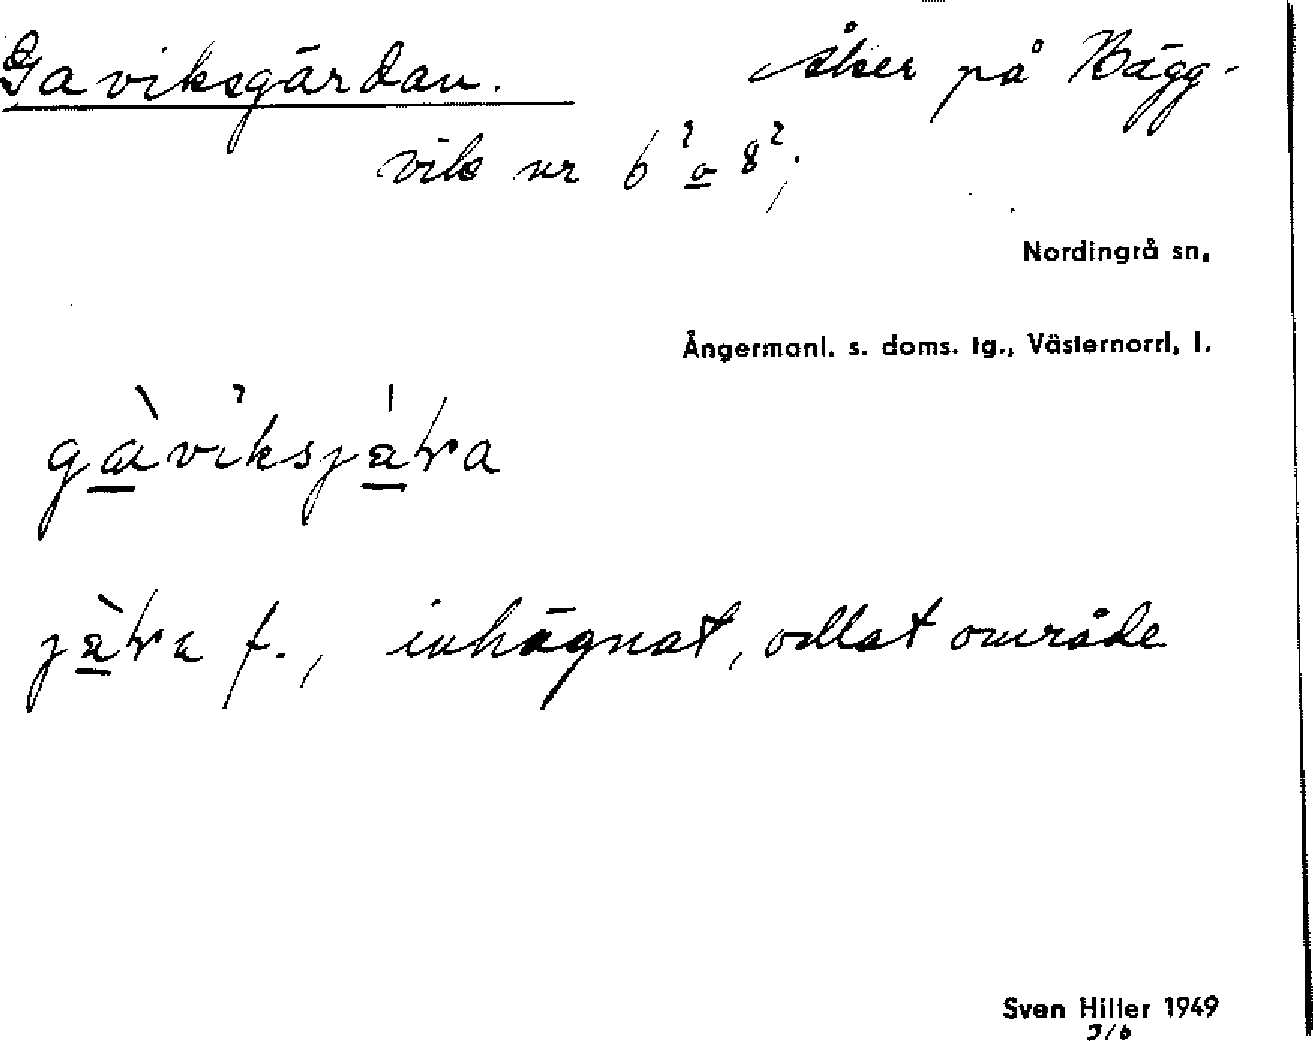 Gaviksgärdan. åker på Bägg-
vik nr 6² o 8²;
Nordingrå sn,
Ångermanl. s. doms. tg., Västernorrl. l.
f., inhägnat, odlat område
Sven Hiller 1949
3/6